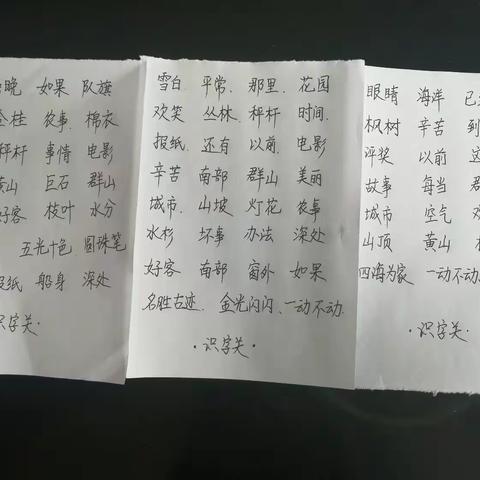 晚 如果 队旗
桂 农事. 棉衣
秤杆 事情 电影
黄山 巨石 群山
好客 枝叶 水分
五光十色 圆珠笔
报纸 船身 深处
识字关.
雪白. 平常. 那里. 花园
欢笑 丛林. 秤杆 时间.
报纸. 还有 以前. 电影
辛苦 南部 群山 美丽
城市. 山坡 灯花 农事
水杉 坏事 办法 深处
好客 南部 窗外 如果
名胜古迹. 金光闪闪、一动不动.
·识字关·
眼睛 海洋 已
枫树 辛苦 到
评奖 以前 这
故事 每当 群
城市 空气 欢
山顶 黄山
四海为家 一动不动
·识字关·